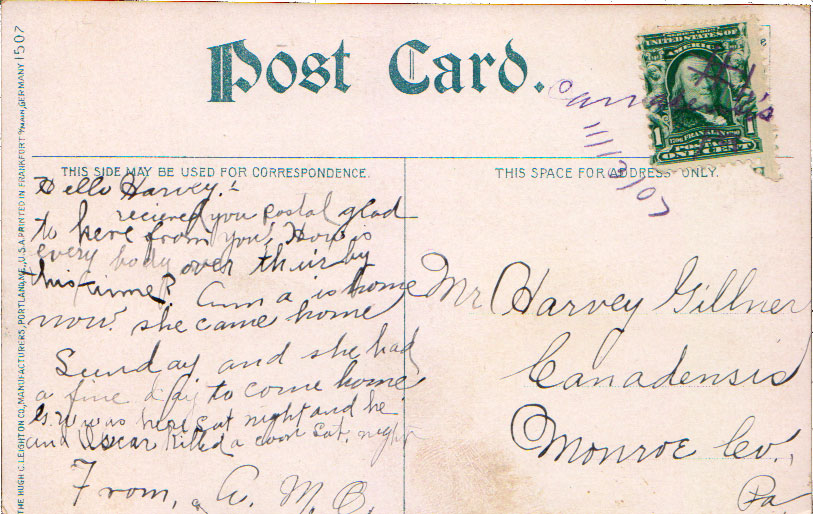 Post Card.
UNITED STATES OF
AMERICA
1 FRANKLIN 1
POSTAGE
ONE CENT
11/12/07
THIS SIDE MAY BE USED FOR CORRESPONDENCE.
THIS SPACE FOR ADDRESS ONLY.
Hello Harvey.!
recieved you postal glad
to here from you! How is
every body over thier by
this time? Anna is home
now? she came home
Sunday and she had
a fine day to come home
was here Sat night and he
and Oscar killed a coon Sat. night
From, A. M. C.
Mr Harvey Gillner
Canadensis
Monroe Co.,
Pa
THE HUGH C. LEIGHTON CO., MANUFACTURERS, PORTLAND, ME., U.S.A. PRINTED IN FRANKFORT o/MAIN, GERMANY 1507